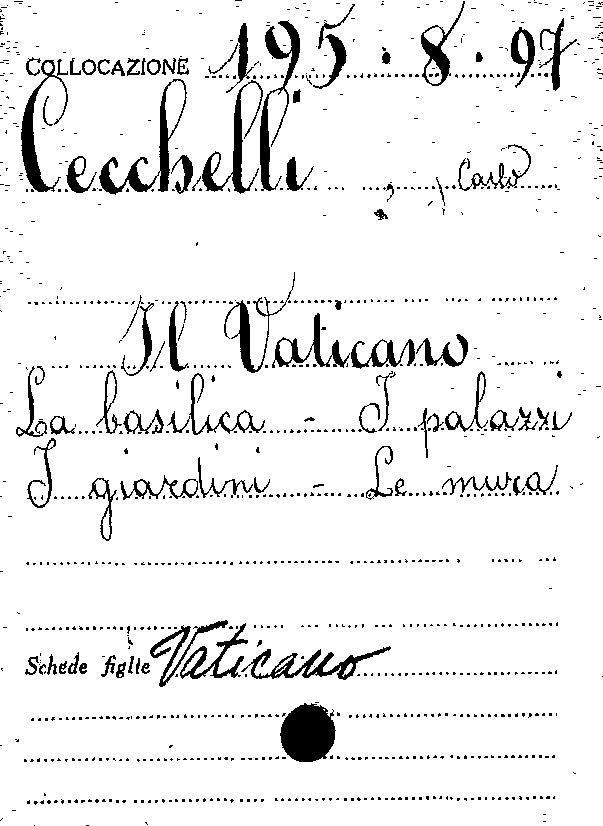 COLLOCAZIONE 195.8.97
Cecchelli, Carlo
Il Vaticano
La basilica - I palazzi
I giardini - Le mura
Schede figlie Vaticano